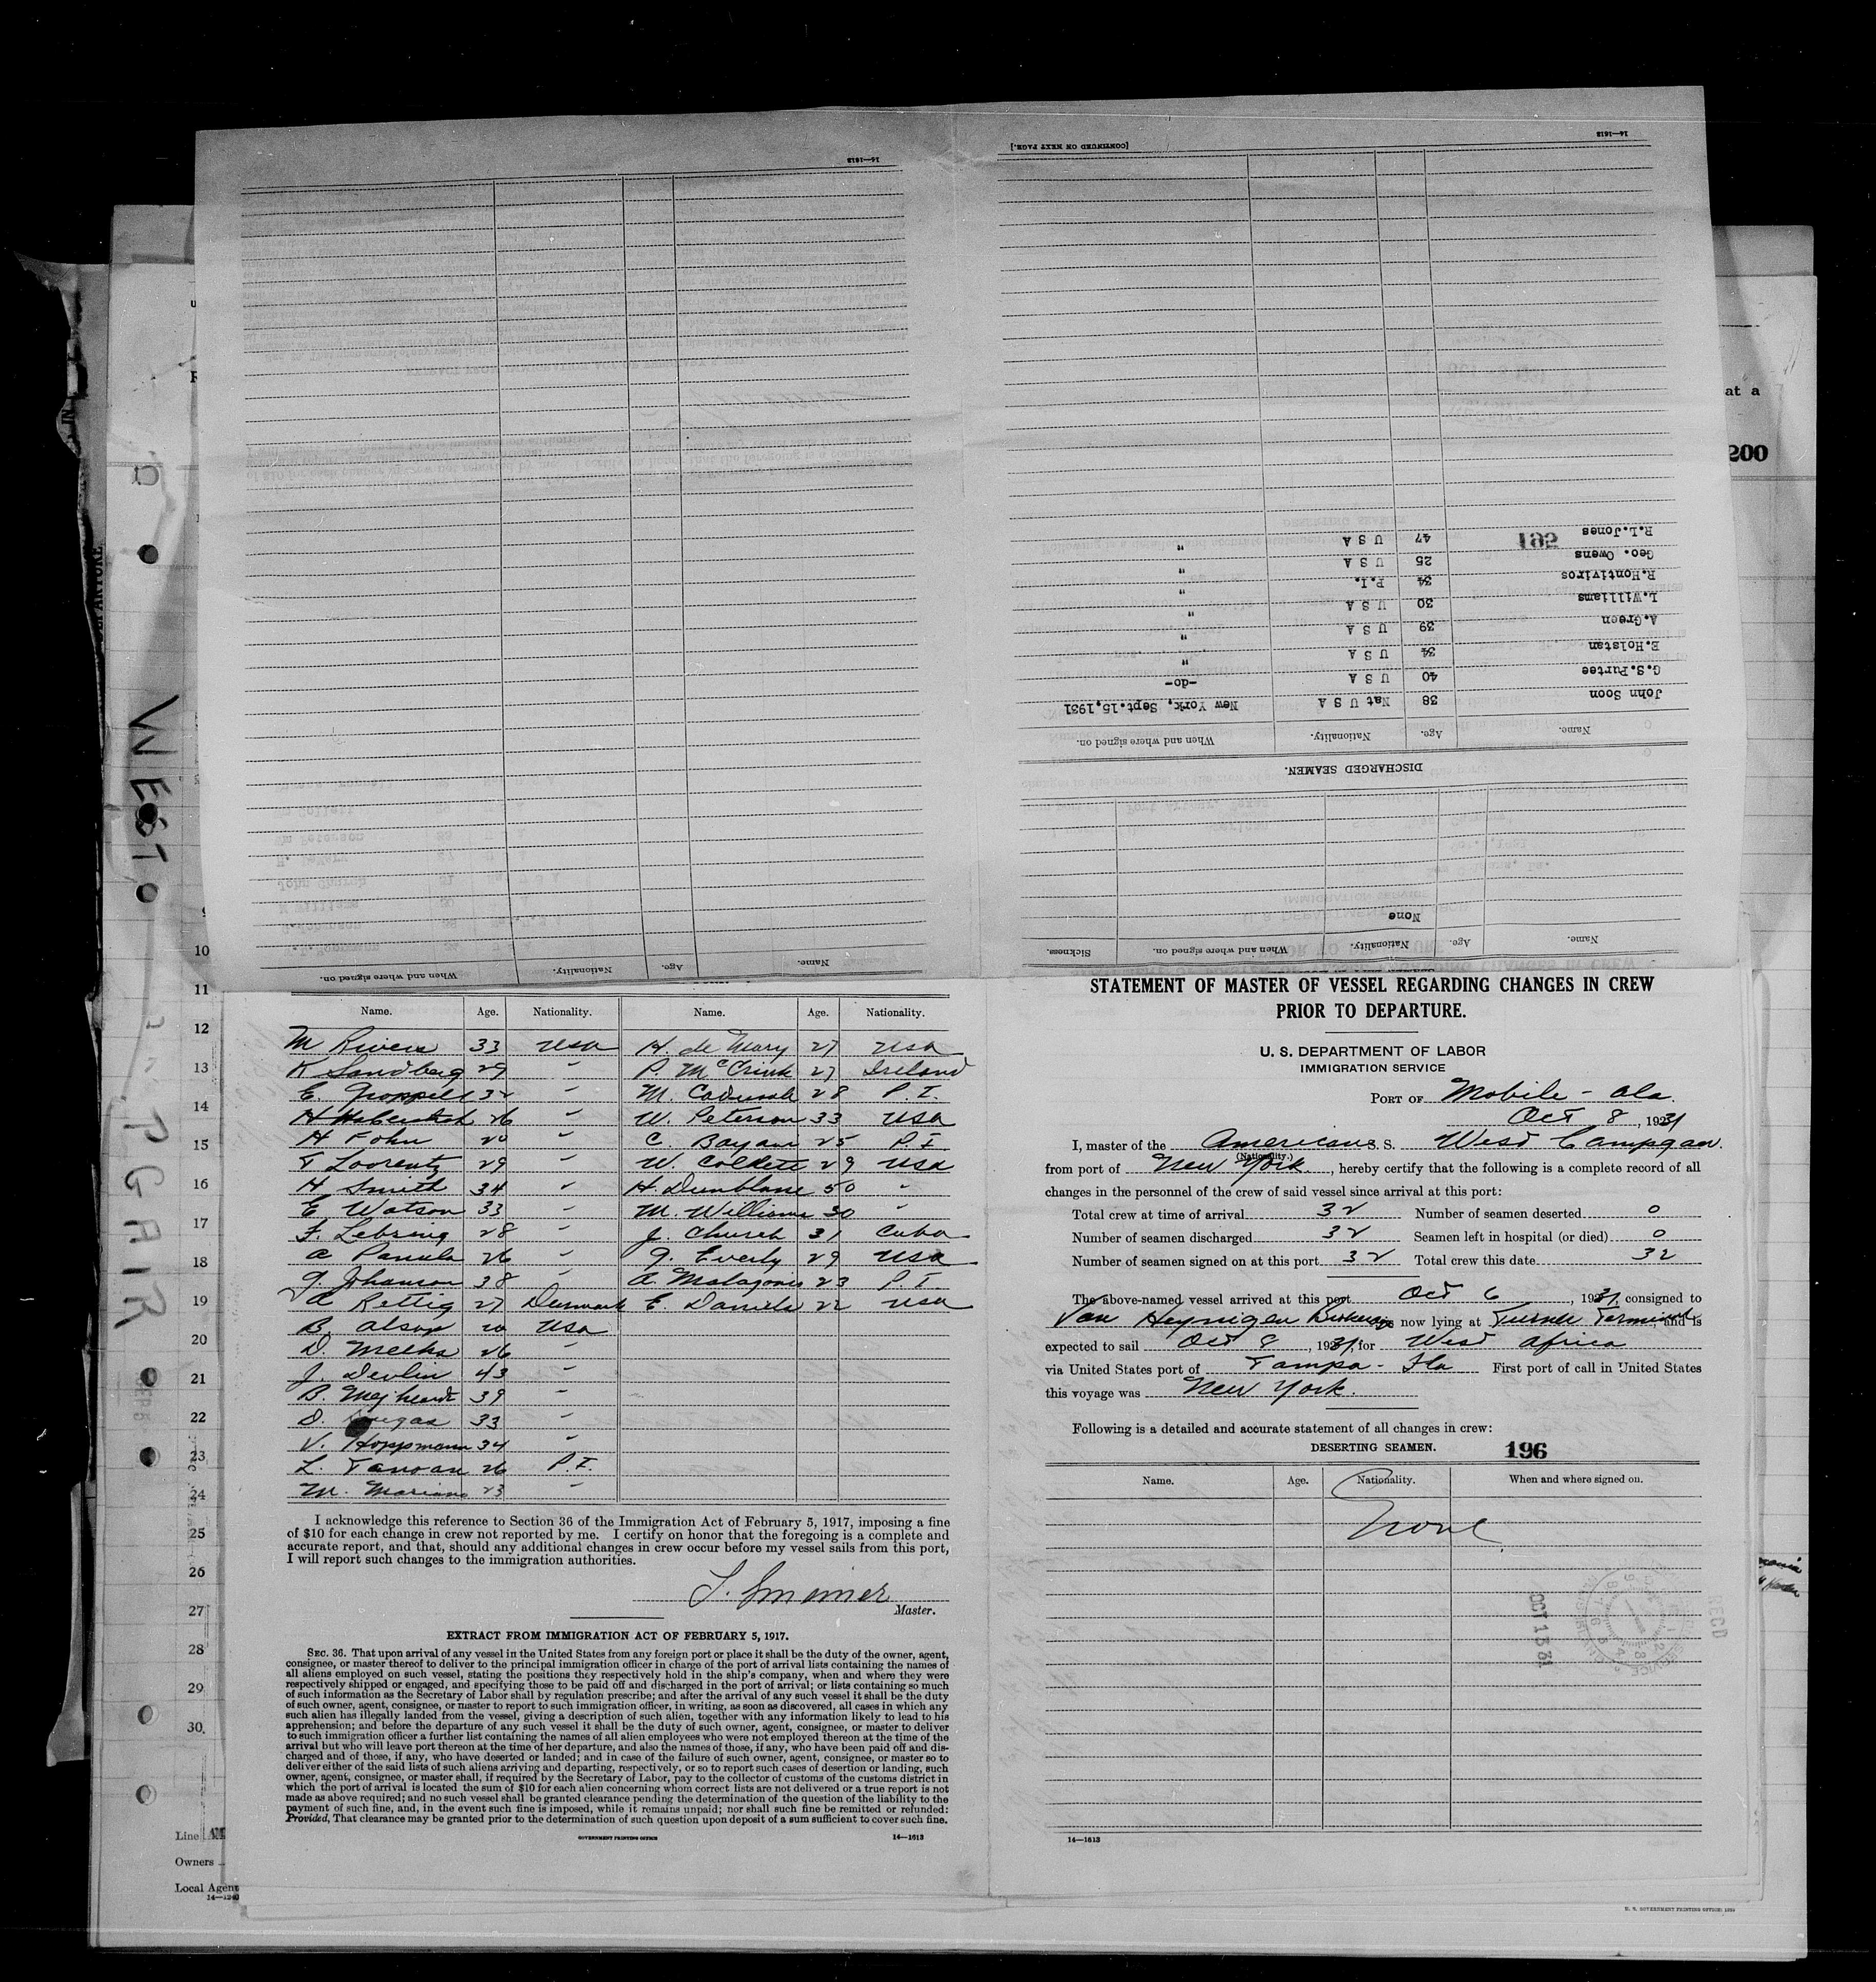 [CONTINUED ON NEXT PAGE.]
14—1613
14—1613
R.L.Jones 47 U S A "
195
Geo. Owens 25 U S A "
R.Hontiviros 34 P.I. "
L.Williams 30 U S A "
A.Green 39 U S A "
E.Holstan 34 U S A "
C.S.Purtee 40 U S A -do-
John Soon 38 Nat U S A New York, Sept.15,1931
Name. Age. Nationality. When and where signed on.
DISCHARGED SEAMEN.
None
Name. Age. Nationality. When and where signed on. Sickness.
Name. Age. Nationality. When and where signed on.
at a
200
WEST
10
11
12
13
14
15
16
17
18
19
20
21
22
23
24
25
26
27
28
29
30
Line
Owners
Local Agent
Name. Age. Nationality. Name. Age. Nationality.
M Rivera 33 USA H. de Mary 27 USA
K Sandberg 29 " P. McCrink 27 Ireland
E. 32 " M. 28 P.I.
H 26 " W. Peterson 33 USA
H Fohn 20 " C. Bayan 25 P.I.
T Loorentz 29 " W. Collett 29 USA
H Smith 34 " H. Dunblane 50 "
E Watson 33 " M. Williams 30 "
F. Lebring 28 " J. Church 31 Cuba
A Panula 26 " G. Everly 29 USA
G. Johanson 38 " A. Malagonis 23 P.I.
A Rettig 27 Denmark E. Daniels 22 USA
B. Olson 20 USA
D. Meeks 26 "
J. Devlin 43 "
B. 39 "
D. 33 "
V. Hoppmann 34 "
L. Tanoan 26 P.I.
M. Mariano 23 "
I acknowledge this reference to Section 36 of the Immigration Act of February 5, 1917, imposing a fine
of $10 for each change in crew not reported by me. I certify on honor that the foregoing is a complete and
accurate report, and that, should any additional changes in crew occur before my vessel sails from this port,
I will report such changes to the immigration authorities.
Master.
EXTRACT FROM IMMIGRATION ACT OF FEBRUARY 5, 1917.
SEC. 36. That upon arrival of any vessel in the United States from any foreign port or place it shall be the duty of the owner, agent,
consignee, or master thereof to deliver to the principal immigration officer in charge of the port of arrival lists containing the names of
all aliens employed on such vessel, stating the positions they respectively hold in the ship's company, when and where they were
respectively shipped or engaged, and specifying those to be paid off and discharged in the port of arrival; or lists containing so much
of such information as the Secretary of Labor shall by regulation prescribe; and after the arrival of any such vessel it shall be the duty
of such owner, agent, consignee, or master to report to such immigration officer, in writing, as soon as discovered, all cases in which any
such alien has illegally landed from the vessel, giving a description of such alien, together with any information likely to lead to his
apprehension; and before the departure of any such vessel it shall be the duty of such owner, agent, consignee, or master to deliver
to such immigration officer a further list containing the names of all alien employees who were not employed thereon at the time of the
arrival but who will leave port thereon at the time of her departure, and also the names of those, if any, who have been paid off and dis-
charged and of those, if any, who have deserted or landed; and in case of the failure of such owner, agent, consignee, or master so to
deliver either of the said lists of such aliens arriving and departing, respectively, or so to report such cases of desertion or landing, such
owner, agent, consignee, or master shall, if required by the Secretary of Labor, pay to the collector of customs of the customs district in
which the port of arrival is located the sum of $10 for each alien concerning whom correct lists are not delivered or a true report is not
made as above required; and no such vessel shall be granted clearance pending the determination of the question of the liability to the
payment of such fine, and, in the event such fine is imposed, while it remains unpaid; nor shall such fine be remitted or refunded:
Provided, That clearance may be granted prior to the determination of such question upon deposit of a sum sufficient to cover such fine.
GOVERNMENT PRINTING OFFICE 14—1613
STATEMENT OF MASTER OF VESSEL REGARDING CHANGES IN CREW
PRIOR TO DEPARTURE.
U. S. DEPARTMENT OF LABOR
IMMIGRATION SERVICE
PORT OF Mobile - Ala.
Oct 8, 1931
I, master of the American S. S. West Campgaw.
(Nationality.)
from port of New York, hereby certify that the following is a complete record of all
changes in the personnel of the crew of said vessel since arrival at this port:
Total crew at time of arrival 32 Number of seamen deserted 0
Number of seamen discharged 32 Seamen left in hospital (or died) 0
Number of seamen signed on at this port 32 Total crew this date 32
The above-named vessel arrived at this port Oct 6, 1931, consigned to
Van Heynigen is now lying at Turner Terminal, and is
expected to sail Oct 8, 1931, for West Africa
via United States port of Tampa - Fla First port of call in United States
this voyage was New York.
Following is a detailed and accurate statement of all changes in crew:
DESERTING SEAMEN. 196
Name. Age. Nationality. When and where signed on.
None
OCT 13 31
RECD
14—1613
U. S. GOVERNMENT PRINTING OFFICE